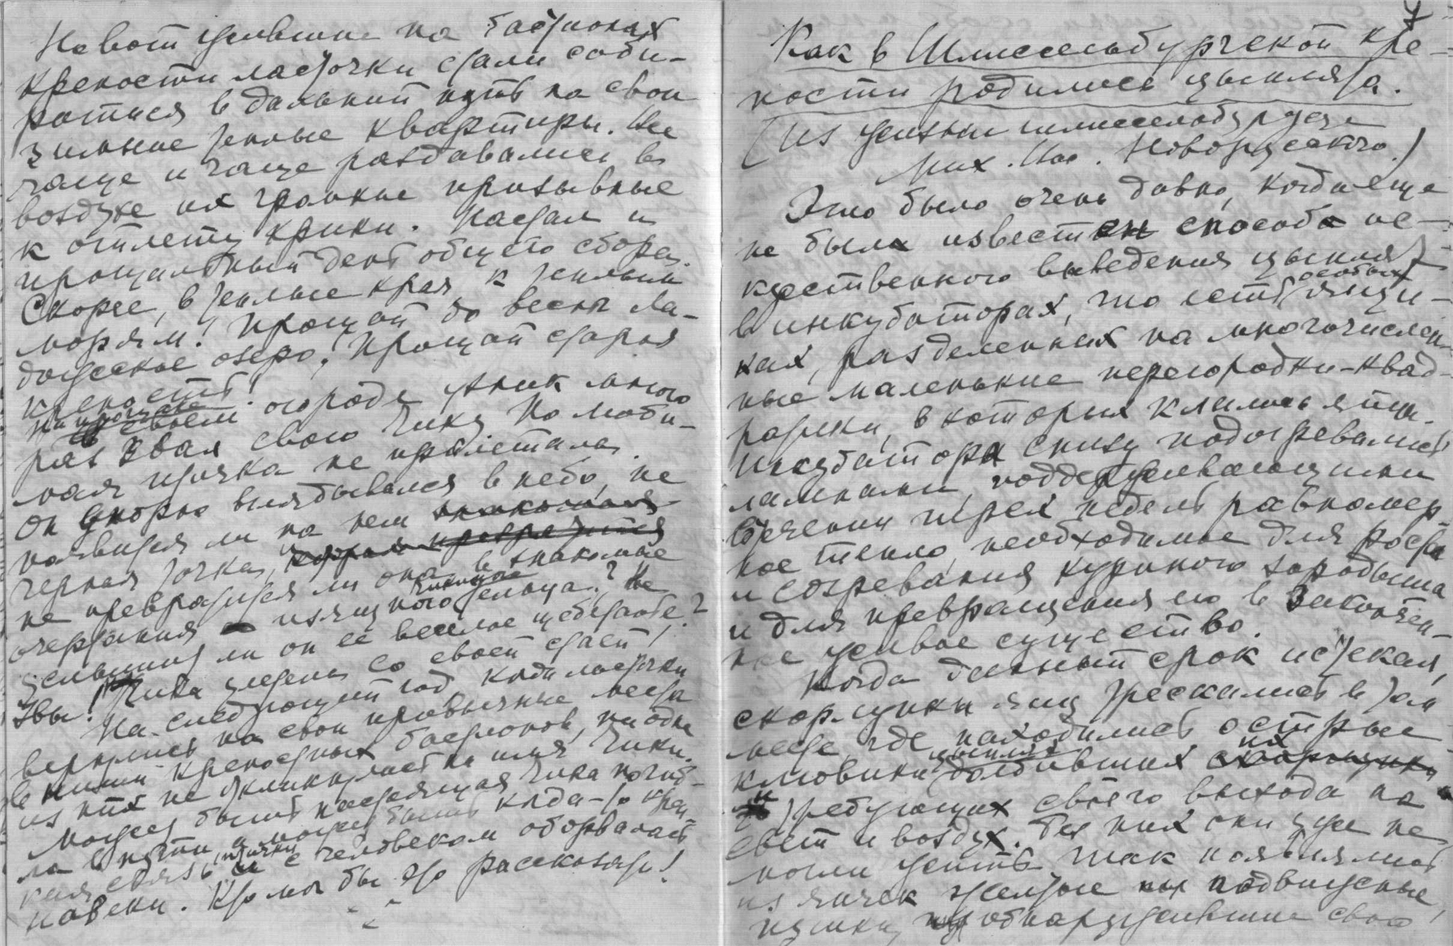 Но вот жившие на бастионах
крепости ласточки стали соби-
раться в дальний путь на свои
зимние теплые квартиры. Все
чаще и чаще раздавались в
воздухе их громкие призывные
к отлету крики. Настал и
прощальный день общего сбора.
Скорее, в теплые края к теплым
морям! Прощай до весны Ла-
дожское озеро! Прощай старая
крепость!
На прощание
в своем огороде Аник много
раз звал свою Чику. Но люби-
мая птичка не прилетала.
Он упорно вглядывался в небо, не
появится ли на нем
черная точка,
не превратится ли она в знакомые
очертания изящного тельца? Не
услышит ли он её веселое щебетанье?
Увы! Чика улетела со своей стаей!
На следующий год когда ласточки
вернулись на свои привычные места
в крепостных бастионов, ни одна
из них не откликулась на имя Чики.
Может быть настоящая Чика погиб-
ла в пути, а может быть когда-то креп-
кая связь птички с человеком оборвалась
навеки. Кто мог бы это рассказать!
7
Как в Шлиссельбургской кре-
пости родились цыплята.
(Из жизни шлиссельбуржца
Мих. Новорусского.)
Это было очень давно, когда еще
не был известен способ ис-
кусственного выведения цыплят
в инкубаторах, то есть особых ящи-
ках, разделенных на многочислен-
ные маленькие перегородки-квад-
ратики, в которых клались яйца.
Инкубатора снизу подогревались
лампами, поддерживающими
в течении трех недель равномер
ное тепло, необходимое для роста
и согревания куриного зародыша
и для превращения его в закончен-
ное живое существо.
Когда данный срок истекал,
скорлупки яиц трескались в том
месте где находились острые
клювики цыплят долбивших их
и требующих своего выхода на
свет и воздух. Без них они уже не
могли жить. Так появлялись
из яичек желтые подвижные
пушки, обнаружившие свои